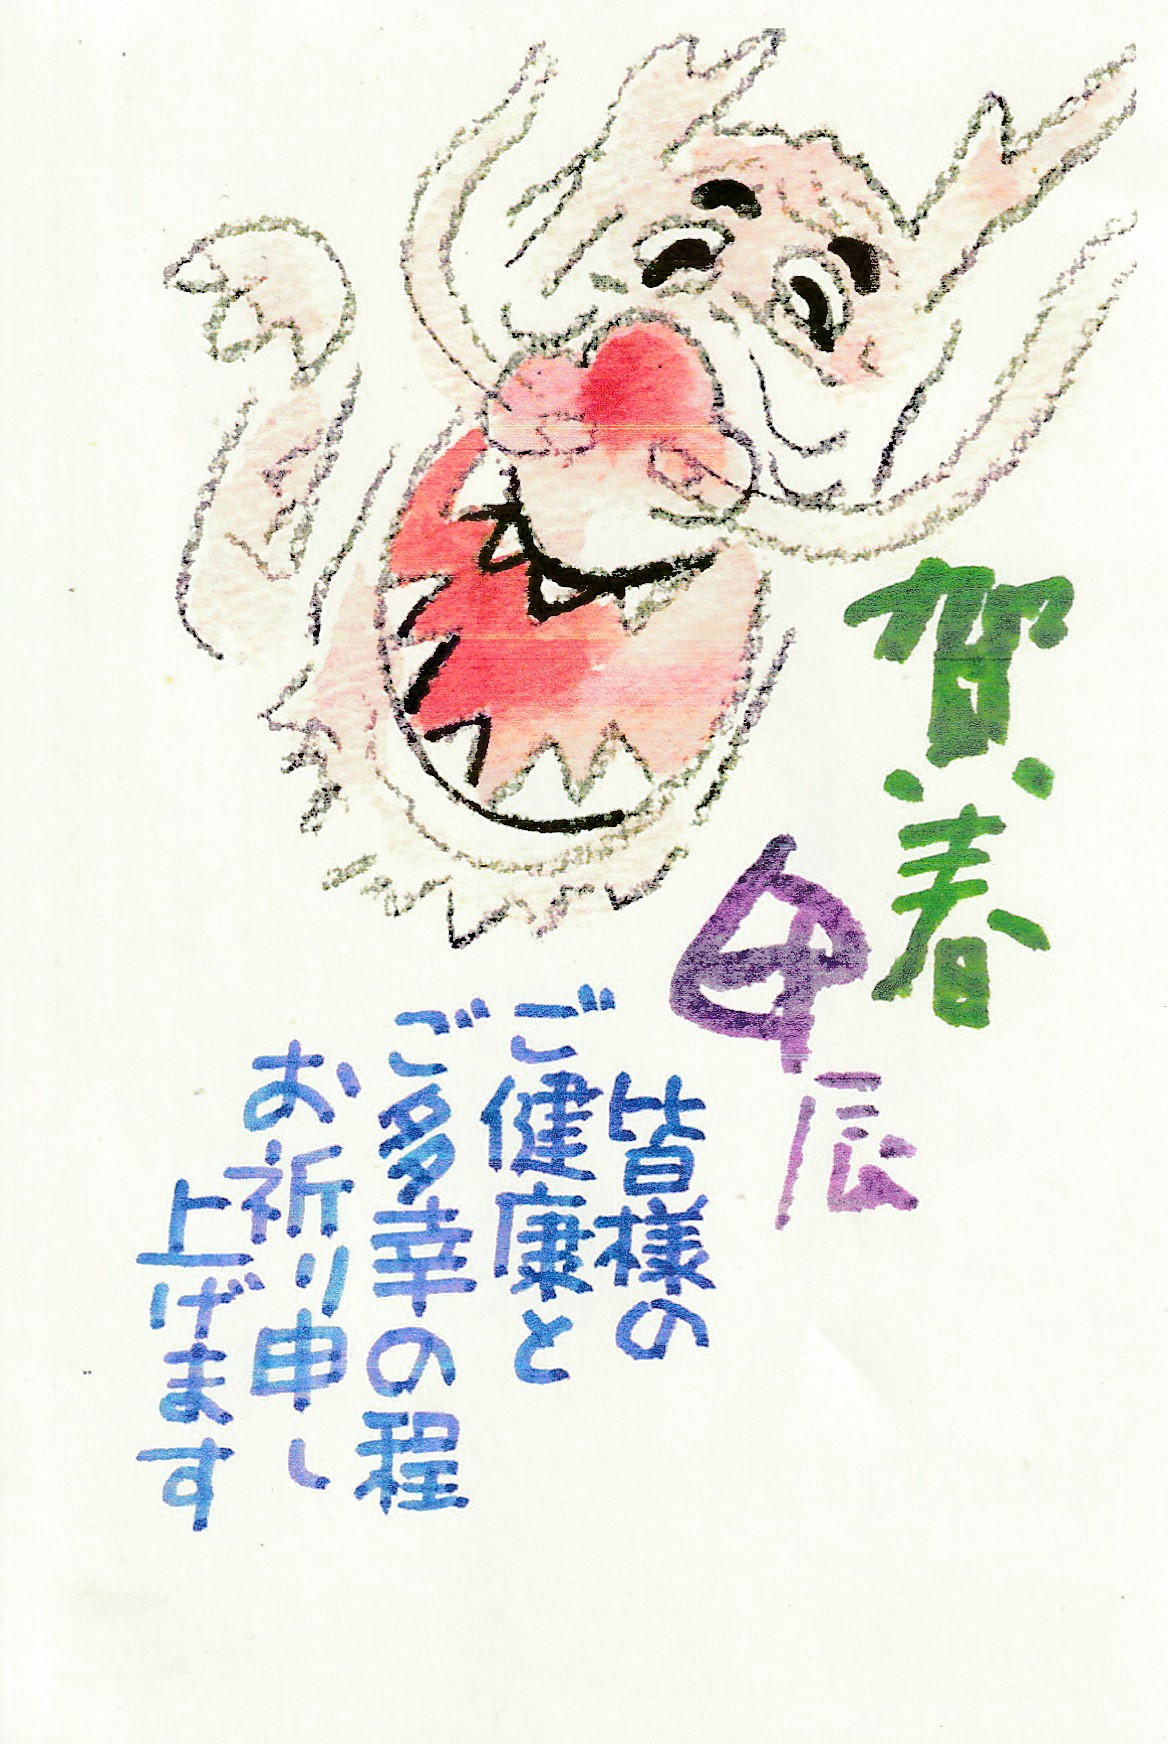 賀春
甲辰
皆様の
ご健康と
ご多幸の程
お祈り申し
上げます